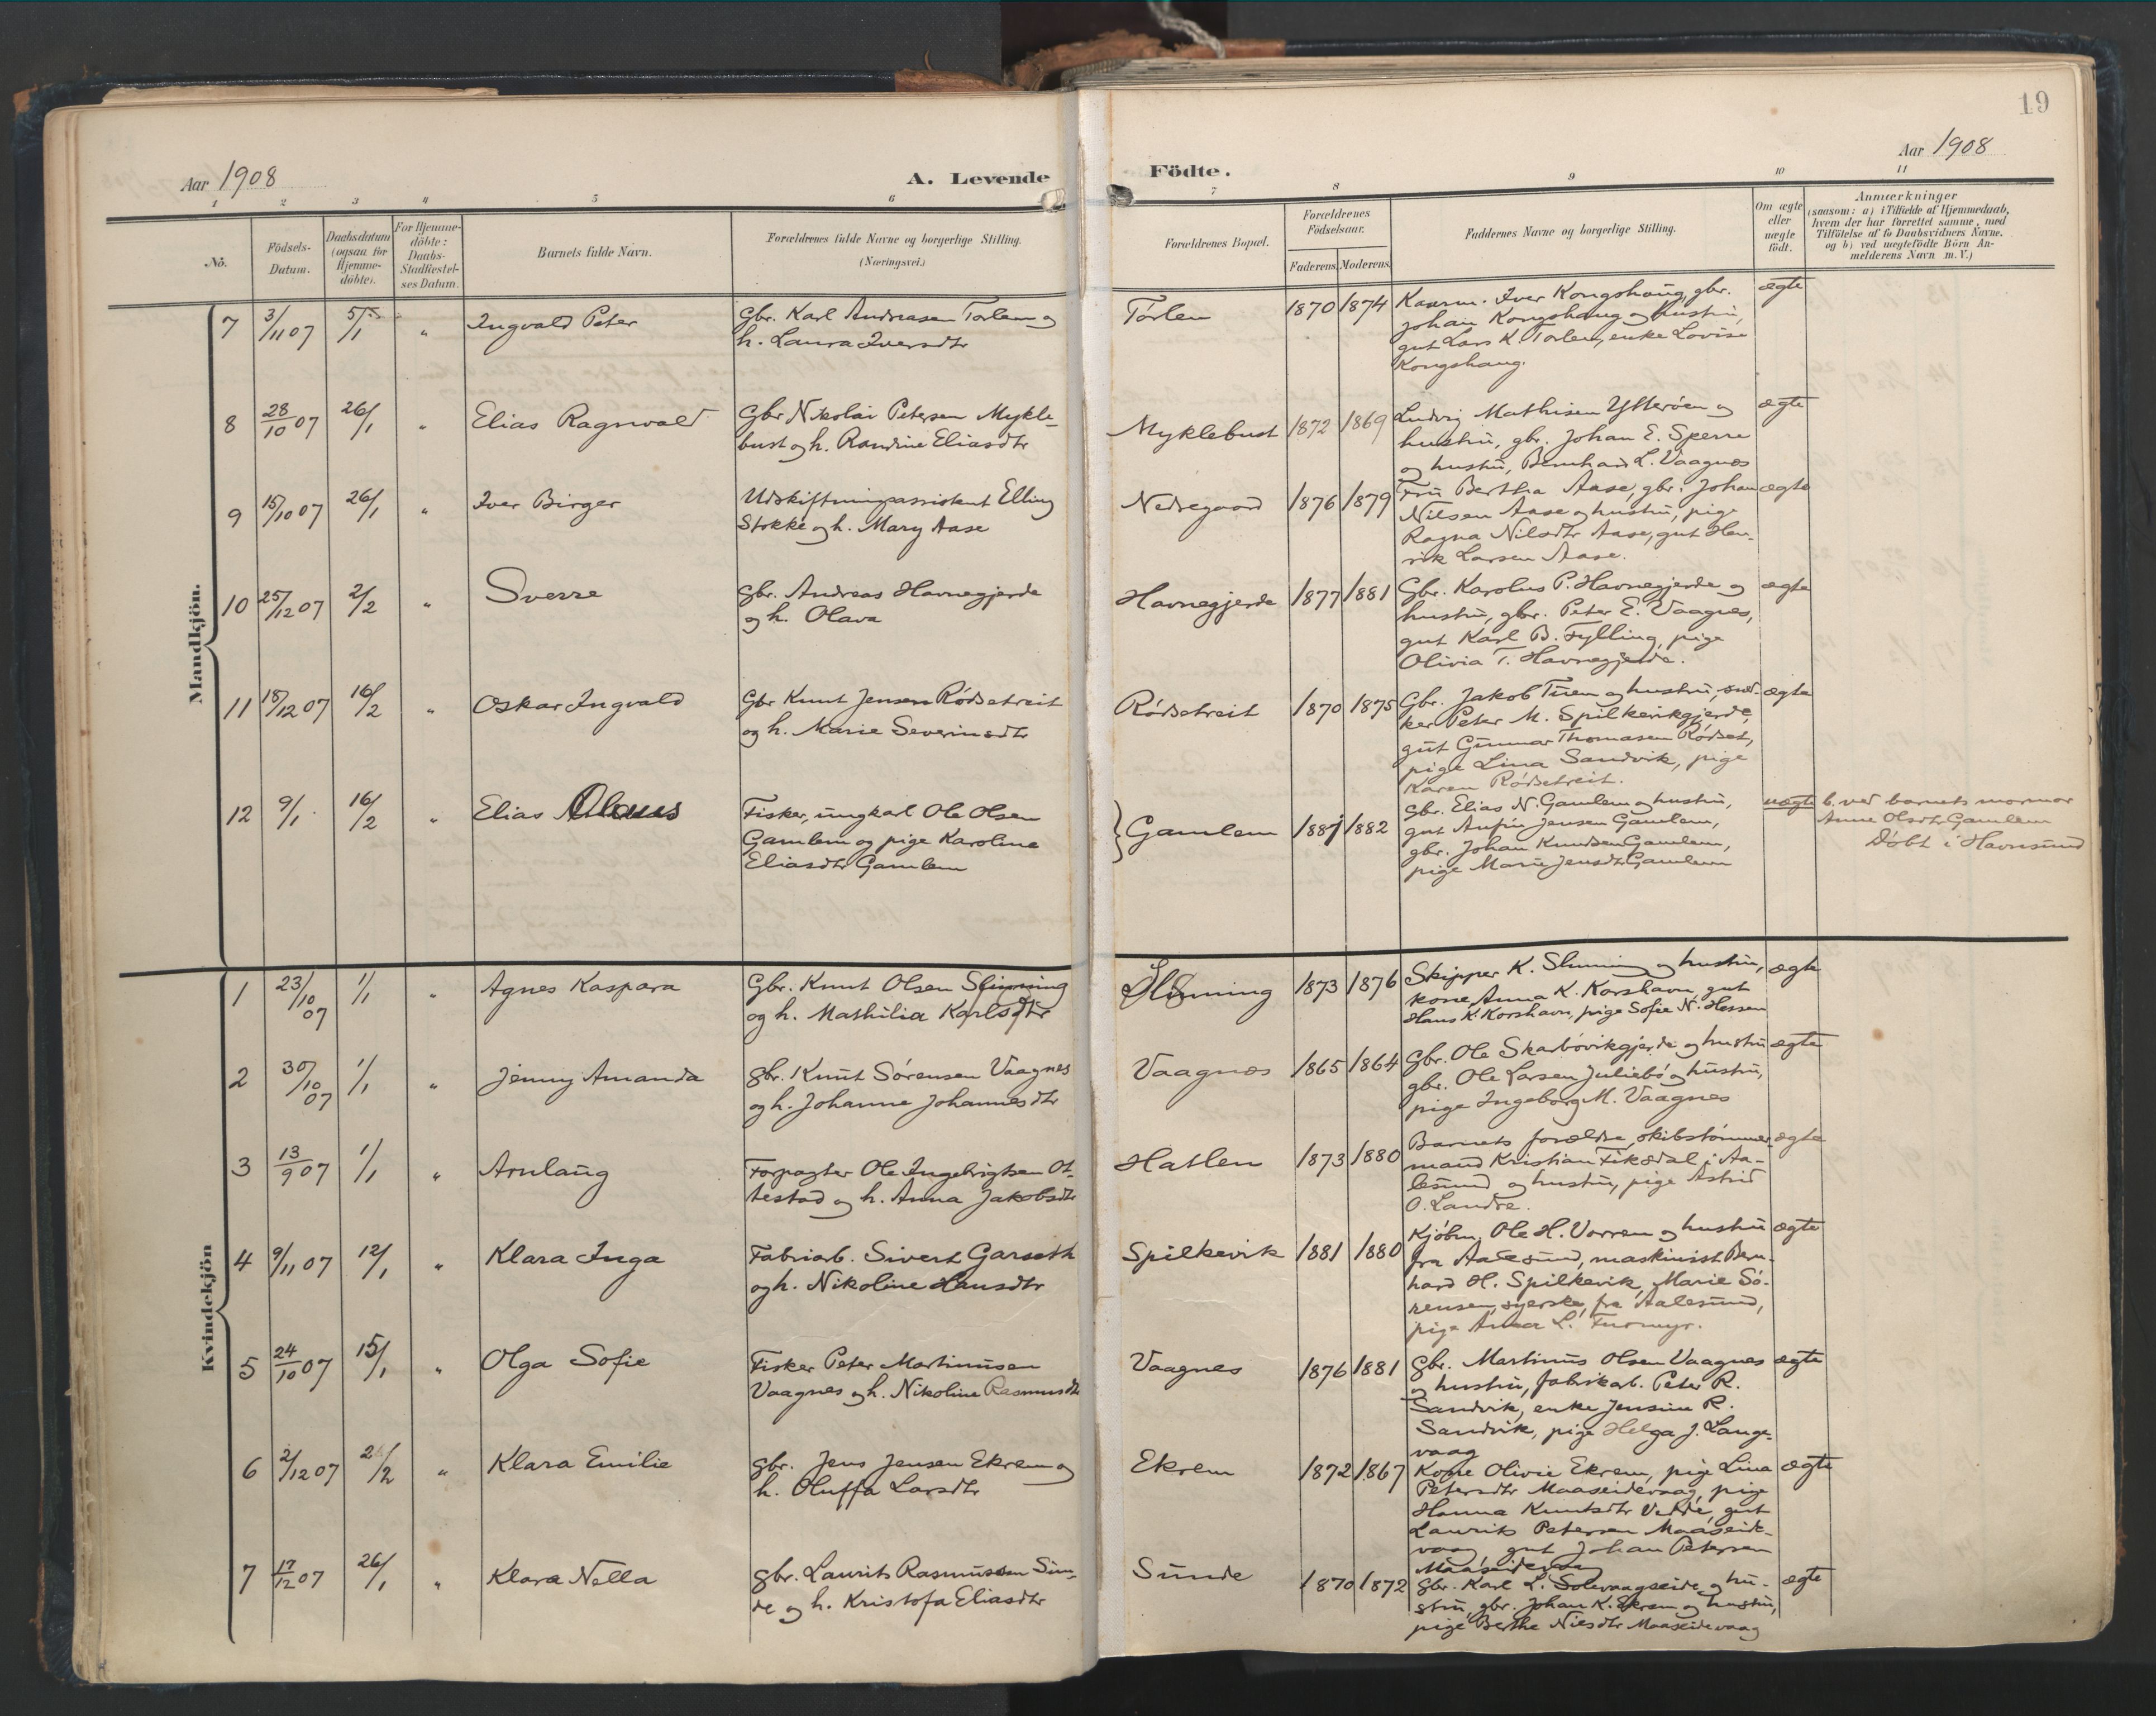 19
Aar 1908
A. Levende
Födte.
Aar 1908
1 2 3 4 5 6 7 8 9 10 11
No.
Födsels-
Datum.
Daabsdatum
(ogsaa for
Hjemme-
döbte).
For Hjemme-
döbte:
Daabs-
Stadfæstel-
ses Datum.
Barnets fulde Navn.
Forældrenes fulde Navne og borgerlige Stilling.
(Næringsvei.)
Forældrenes Bopæl.
Forældrenes
Födselsaar.
Faderens. Moderens.
Faddernes Navne og borgerlige Stilling.
Om ægte
eller
uægte
födt.
Anmærkninger
(saasom: a) i Tilfælde af Hjemmedaab,
hvem der har forrettet samme, med
Tilföielse af to Daabsvidners Navne.
og b) ved uægtefödte Börn An-
melderens Navn m. V.)
Mandkjön.
7 3/11 07 5/1 " Ingvald Peter
Gbr. Karl Andreasen Torlem og
h. Laura Iversdtr
Torlen 1870 1874
Kaarm. Iver Kongshaug, gbr.
Johan Kongshaug og hustru,
gut Lars K. Torlen, enke Lovise
Kongshaug.
ægte
8 28/10 07 26/1 " Elias Ragnvald
Gbr Nikolai Petersen Mykle-
bust og h. Randine Eliasdtr
Myklebust 1872 1869
Ludvig Mathisen Ytterøen og
hustru, gbr. Johan E. Sperre
og hustru, Bernhard L. Vaagnes
ægte
9 15/10 07 26/1 " Iver Birger
Udskiftningsassistent Elling
Stokke og h. Mary Aase
Nedregaard 1876 1879
Fru Bertha Aase, gbr. Johan
Nilsen Aase og hustru, pige
Ragna Nilsdtr Aase, gut Hen-
rik Larsen Aase.
ægte
10 25/12 07 2/2 " Sverre
Gbr. Andreas Havnegjerde
og h. Olava
Havnegjerde 1877 1881
Gbr. Karolus P. Havnegjerde og
hustru, gbr. Peter E. Vaagnes,
gut Karl B. Fylling, pige
Olivia T. Havnegjerde.
ægte
11 18/12 07 16/2 " Oskar Ingvald
Gbr Knut Jensen Rødsetreit
og h. Marie Severinsdtr
Rødsetreit 1870 1875
Gbr. Jakob Tuen og hustru, sned-
ker Peter M. Spilkevikgjerde,
gut Gunnar Thomasen Rødset,
pige Lina Sandvik, pige
Karen Rødsetreit.
ægte
12 9/1 16/2 " Elias Olaus
Fisker, ungkarl Ole Olsen
Gamlem og pige Karoline
Eliasdtr Gamlem
Gamlem 1881 1882
Gbr. Elias N. Gamlem og hustru,
gut Anfin Jensen Gamlem,
gbr. Johan Knudsen Gamlem,
pige Marie Jensdtr Gamlem
uægte
b. ved barnets mormor
Anne Olsdtr Gamlem
Døbt i Havnsund
Kvindekjön
1 23/10 07 1/1 " Agnes Kaspara
Gbr. Knut Olsen Slinning
og h. Mathilia Karlsdtr
Slinning 1873 1876
Skipper K. Slinning og hustru,
kone Anna K. Korshavn, gut
Hans K. Korshavn, pige Sofie N. Hessen
ægte
2 30/10 07 1/1 " Jenny Amanda
gbr. Knut Sørensen Vaagnes
og h. Johanne Johannesdtr
Vaagnes 1865 1864
Gbr. Ole Skarbøvikgjerde og hustru
gbr. Ole Larsen Juliebø og hustru,
pige Ingeborg M. Vaagnes
ægte
3 13/9 07 1/1 " Arnlaug
Forpagter Ole Ingebrigtsen Ot-
testad og h. Anna Jakobsdtr
Hatlen 1873 1880
Barnets forældre, skibstømmer-
mand Kristian Fiksdal i Aa-
lesund og hustru, pige Astrid
O. Landre.
ægte
4 9/11 07 12/1 " Klara Inga
Fabriarb. Sivert Garseth
og h. Nikoline Hansdtr
Spilkevik 1881 1880
Kjøbm. Ole H. Vorren og hustru
fra Aalesund, maskinist Bern-
hard H. Spilkevik, Marie Sø-
rensen, syerske, fra Aalesund,
pige Anna L. Furmyr.
ægte
5 24/10 07 15/1 " Olga Sofie
Fisker Peter Martinusen
Vaagnes og h. Nikoline Rasmusdtr
Vaagnes 1876 1881
Gbr. Martinus Olsen Vaagnes
og hustru, fabrikarb. Peter R.
Sandvik, enke Jensine R.
Sandvik, pige Helga J. Lange-
vaag
ægte
6 2/12 07 2/2 " Klara Emilie
gbr. Jens Jensen Ekrem og
h. Oluffa Larsdtr
Ekrem 1872 1867
Kone Olivie Ekrem, pige Lina
Petersdtr Maaseidevaag, pige
Hanna Knutsdtr Vedde, gut
Laurits Petersen Maaseide-
vaag, gut Johan Petersen
Maaseidevaag
ægte
7 17/12 07 26/1 " Klara Nella
gbr. Laurits Rasmussen Sun-
de og h. Kristofa Eliasdtr
Sunde 1870 1872
Gbr. Karl L. Solevaagseide og hu-
stru, gbr. Johan K. Ekrem og hustru,
pige Berthe Nilsdtr Maaseidevaag
ægte